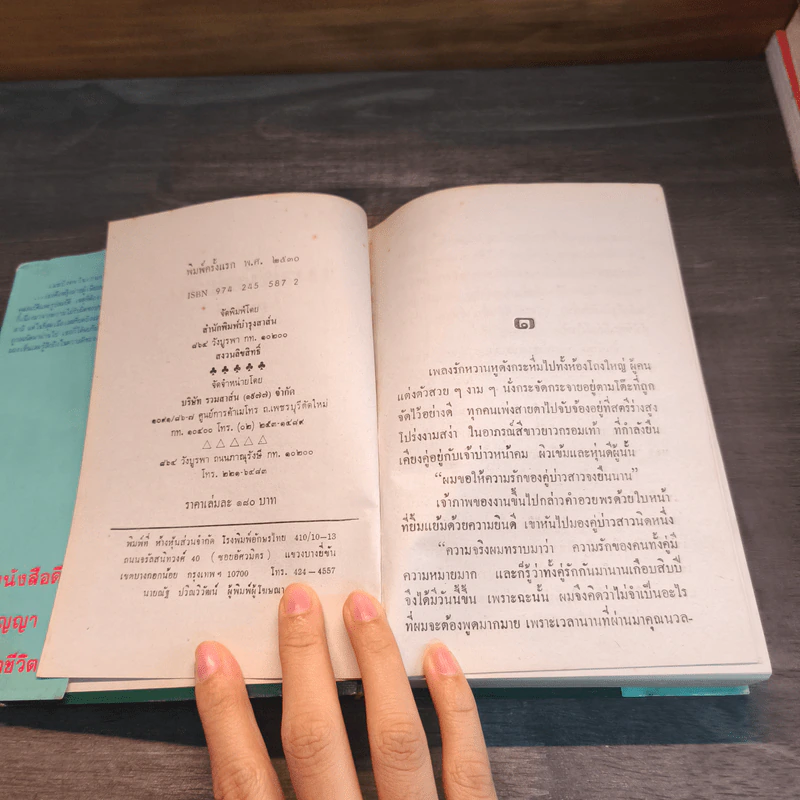 พิมพ์ครั้งแรก พ.ศ. ๒๕๓๐
ISBN 974 245 587 2
จัดพิมพ์โดย
สำนักพิมพ์บำรุงสาส์น
๘๖๔ วังบูรพา กท. ๑๐๒๐๐
สงวนลิขสิทธิ์
♣ ♣ ♣ ♣ ♣
จัดจำหน่ายโดย
บริษัท รวมสาส์น (๑๕๗๗) จำกัด
๑๐๙๑/๘๖-๗ ศูนย์การค้าเมโทร ถ.เพชรบุรีตัดใหม่
กท. ๑๐๔๐๐ โทร. (๐๒) ๒๕๓-๑๔๘๙
△ △ △ △ △
๘๖๔ วังบูรพา ถนนภาณุรังษี กท. ๑๐๒๐๐
โทร. ๒๒๑-๖๔๘๓
ราคาเล่มละ ๑๘๐ บาท
พิมพ์ที่ ห้างหุ้นส่วนจำกัด โรงพิมพ์อักษรไทย 410/10-13
ถนนจรัลสนิทวงศ์ 40 ( ซอยอัศวมิตร ) แขวงบางยี่ขัน
เขตบางกอกน้อย กรุงเทพ ฯ 10700 โทร. 424-4557
นายณัฐ ปวิณวิวัฒน์ ผู้พิมพ์ผู้โฆษณา
๑
เพลงรักหวานหูดังกระหึ่มไปทั้งห้องโถงใหญ่ ผู้คน
แต่งตัวสวย ๆ งาม ๆ นั่งกระจัดกระจายอยู่ตามโต๊ะที่ถูก
จัดไว้อย่างดี ทุกคนเพ่งสายตาไปจับจ้องอยู่ที่สตรีร่างสูง
โปร่งงามสง่า ในอาภรณ์สีขาวยาวกรอมเท้า ที่กำลังยืน
เคียงคู่อยู่กับเจ้าบ่าวหน้าคม ผิวเข้มและหุ่นดีผู้นั้น
“ผมขอให้ความรักของคู่บ่าวสาวจงยืนนาน”
เจ้าภาพของงานขึ้นไปกล่าวคำอวยพรด้วยใบหน้า
ที่ยิ้มแย้มด้วยความยินดี เขาหันไปมองคู่บ่าวสาวนิดหนึ่ง
“ความจริงผมทราบมาว่า ความรักของคนทั้งคู่มี
ความหมายมาก และก็รู้ว่าทั้งคู่รักกันมานานเกือบสิบปี
จึงได้มีวันนี้ขึ้น เพราะฉะนั้น ผมจึงคิดว่าไม่จำเป็นอะไร
ที่ผมจะต้องพูดมากมาย เพราะเวลานานที่ผ่านมาคุณนวล-